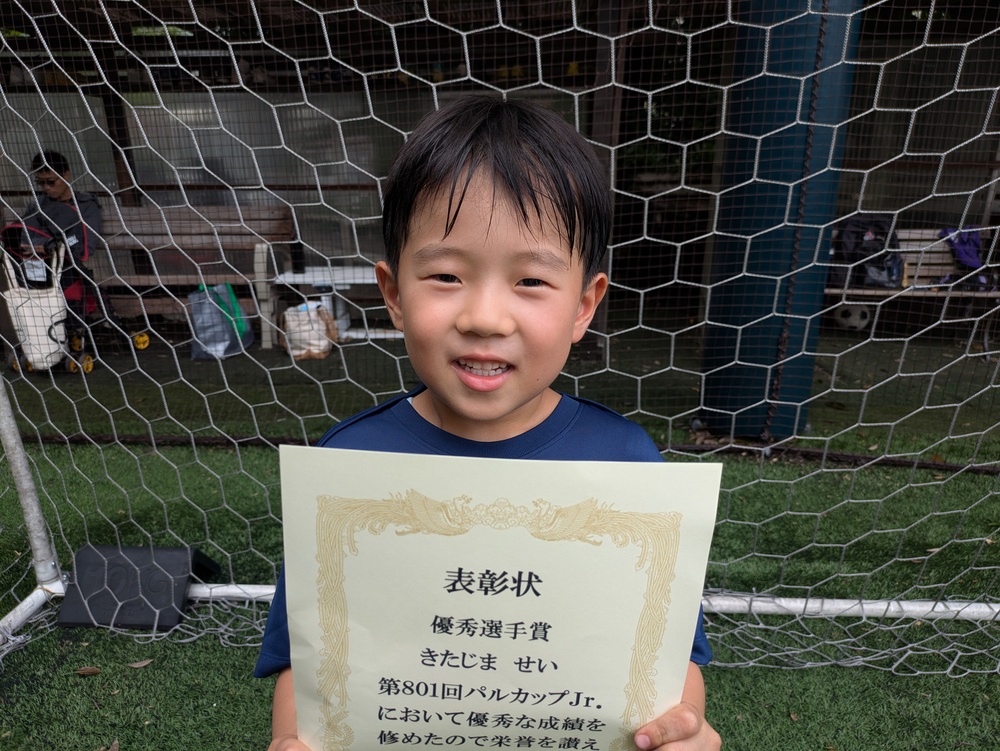 表彰状
優秀選手賞
きたじま せい
第801回パルカップJr.
において優秀な成績を
修めたので栄誉を讃え